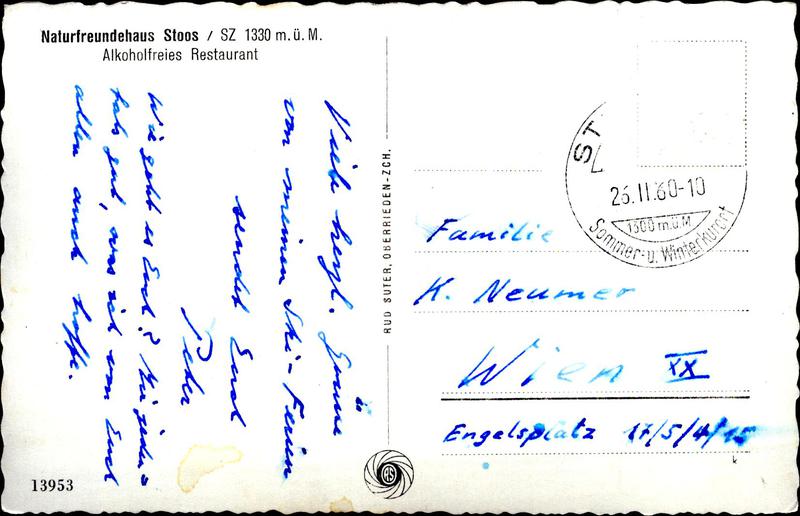 Naturfreundehaus Stoos / SZ 1330 m. ü. M.
Alkoholfreies Restaurant
Viele herzl. Grüsse
von meinen Ski-Ferien
sendet Euch
Peter
Wie geht es Euch? Mir jeden-
falls gut, was ich von Euch
allen auch hoffe.
RUD SUTER, OBERRIEDEN-ZCH.
ST
26.II.60-10
1300 m.ü.M
Sommer- u. Winterkurort
Familie
K. Neumer
Wien XX
Engelsplatz 17/5/4/15
13953